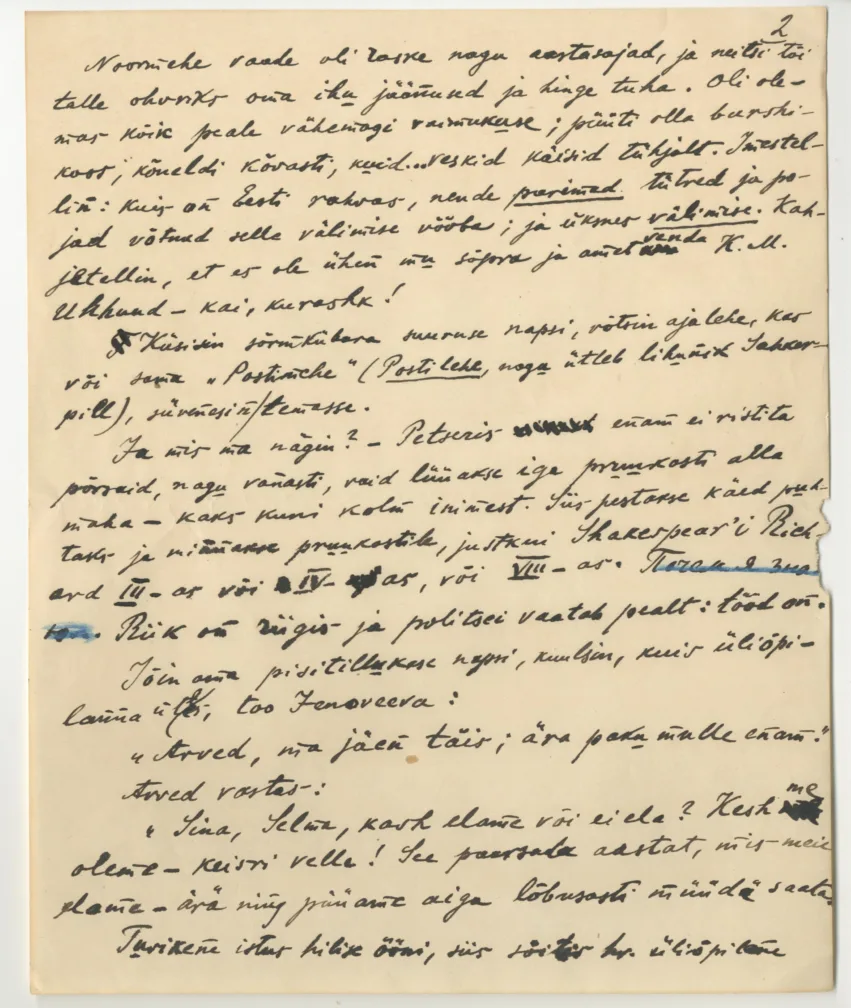 2
Noormehe vaade oli raske nagu aastasajad, ja neitsi tõi
talle ohvriks oma ihu jäänused ja hinge tuha. Oli ole-
mas kõik peale vähemagi vaimukuse; püüti olla burshi-
koos, kõneldi kõvasti, kuid...veskid käisid tühjalt. Imestel-
lin: kuis on Eesti rahvas, nende parimad tütred ja po-
jad võtnud selle välimise vööba; ja üksnes välimise. Kah-
jetellin, et es ole ühen mu sõpra ja ametvenda K.M.
Uhhuud – kai, kurashk!
Küsisin sõrmkübara suuruse napsi, võtsin ajalehe, kas
või sama „Postimehe" (Postilehe, nagu ütleb lihunik Sahker-
pill), süvenesin temasse.
Ja mis ma nägin? – Petseris enam ei ristita
põrsaid, nagu vanasti, vaid lüüakse ige pruukosti alla
maha – kaks kuni kolm inimest. Siis pestakse käed puh-
taks ja minnakse pruukostile, justkui Shakespear'i Rich-
ard III-as või IV-as, või VIII-as. Почем я зна
Riik on riigis ja politsei vaatab pealt: tööd on.
Jõin oma pisitillukese napsi, kuulsin, kuis üliõpi-
lanna ütles, too Jenoveeva:
„Arved, ma jäen täis; ära paku mulle enam."
Arved vastas:
„Sina, Selma, kash elame või ei ela? Kesh me
oleme – keisri velle! See paarsada aastat, mis meie
elame – ärä ning püüame aiga lõbusasti müüdä saata.
Turikene istus hilise ööni, siis sõitis hr. üliõpilane